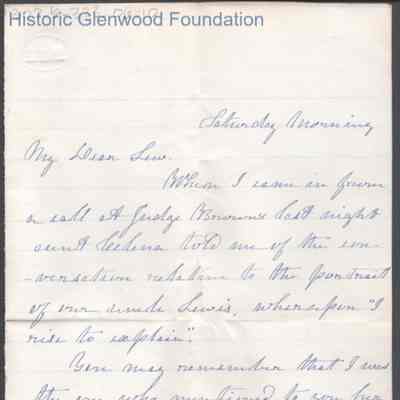 Historic Glenwood Foundation
Saturday Morning
My Dear Lew.
When I came in from
a call at Judge Browns last night
aunt told me of the con-
-versation relative to the portrait
of our uncle Lewis, whereupon "I
rise to explain".
You may remember that I was
the one who mentioned to you her